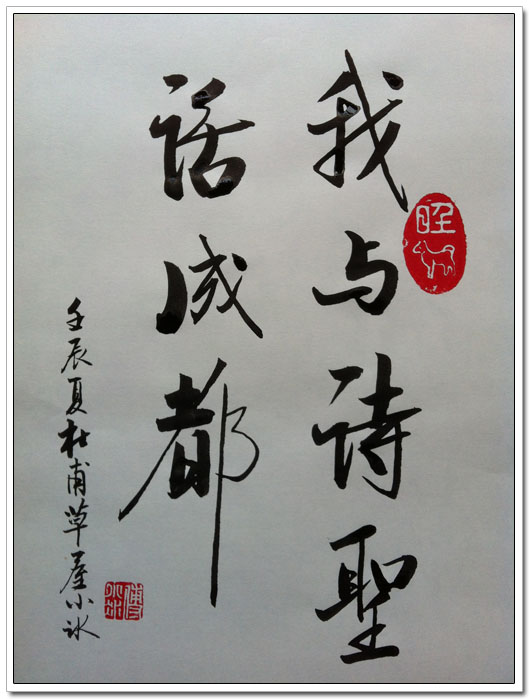 我与诗聖
话成都
壬辰夏杜甫草屋小冰
旺